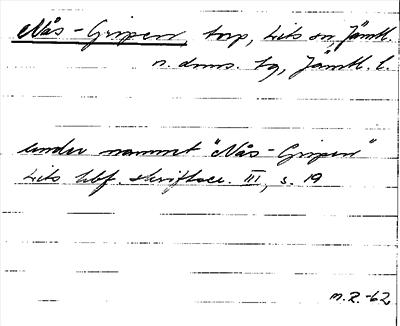 Nås-Gripen, torp, Lits sn, Jämtl.
n. doms. tg, Jämtl. l.
under namnet "Nås-Gripen"
Lits hbf. skriftser. III, s. 19
M.R.-62